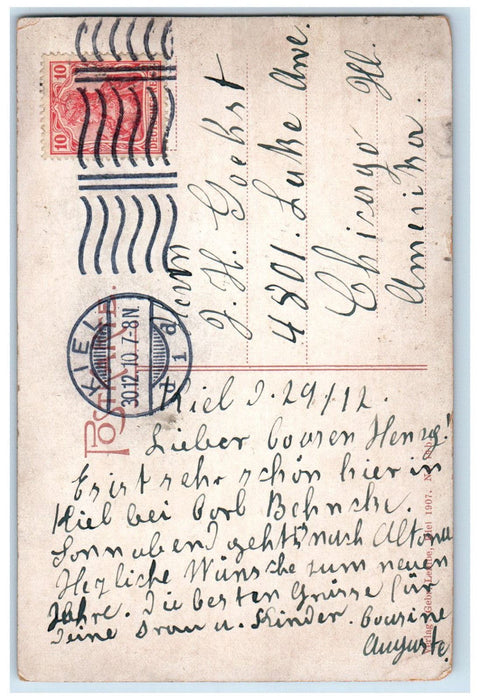 10 10
KIEL
30.12.10. 7-8N.
1 d
POSTKARTE.
Herrn
J. H. Goehst
4801. Lake Ave.
Chicago Ill.
Amerika.
Kiel d. 29/12.
Lieber Cousen Henry!
Es ist sehr schön hier in
Kiel bei Carl Behncke.
Sonnabend geht's nach Altona
Herzliche Wünsche zum neuen
Jahre. Die besten Grüsse für
Deine Frau u. Kinder. Cousine
Auguste.
Verlag Gebr. Lempe, Kiel 1907.